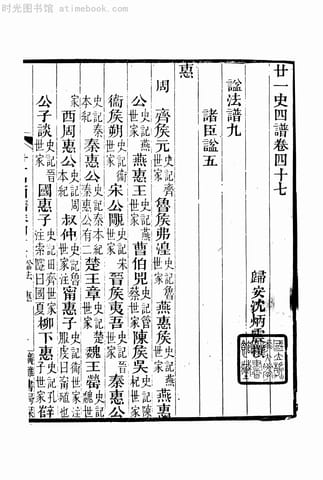 时光图书馆 atimebook.com
廿一史四譜卷四十七
歸安沈炳震撰
諡法譜九
諸臣諡五
惠
周 齊侯元史記齊世家 魯侯弗湟史記魯世家 燕惠侯史記燕世家 燕惠
公史記燕世家 燕惠王史記燕世家 曹伯兕史記管蔡世家 陳侯吳史記陳世家
衞侯朔史記衞世家 宋公覸史記宋世家 晉侯夷吾史記晉世家 秦惠公
史記秦本紀 秦惠公史記秦本紀有二惠公 楚王章史記楚世家 魏王罃史記魏世家
西周惠公史記周本紀 周叔仲 甯惠子史記衞世家注服虔曰甯殖也
公子談史記晉世家 國惠子史記田齊世家注索隱曰國夏 柳下惠史記孔子世家
廣雅書局栞